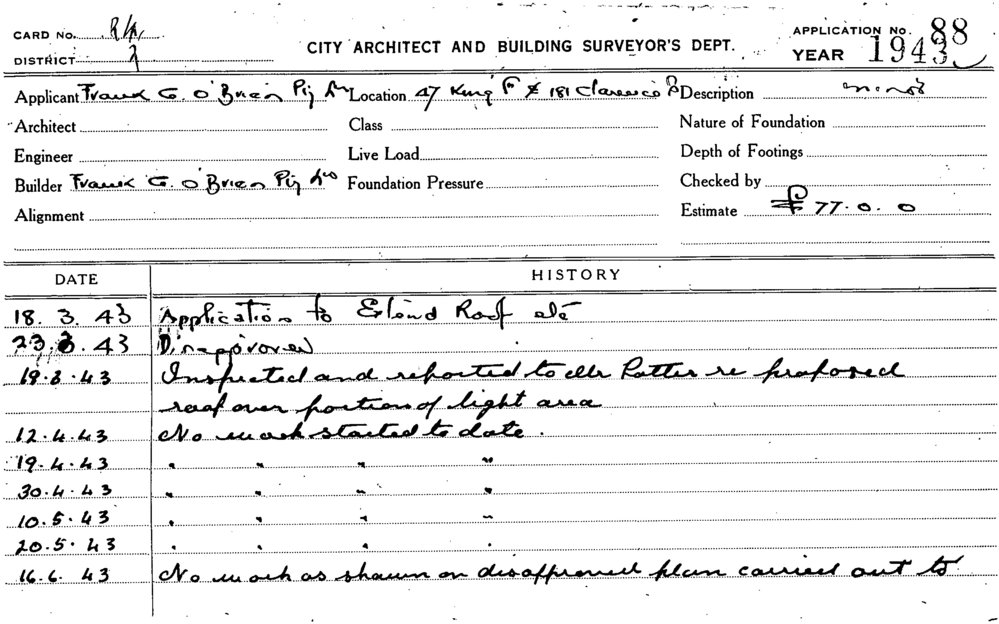 CARD No.
DISTRICT
CITY ARCHITECT AND BUILDING SURVEYOR'S DEPT.
APPLICATION No. 88
YEAR 1943
Applicant Frank G. O'Brien Pty Location 47 King St & 181 Clarence St Description minor
Architect Class Nature of Foundation
Engineer Live Load Depth of Footings
Builder Frank G. O'Brien Pty Foundation Pressure Checked by
Alignment Estimate £77.0.0
DATE HISTORY
18. 3. 43 Application to Extend Roof etc
23.3. 43 Disapproved
19.3.43 Inspected and reported to Mr Potter re proposed
roof over portion of light area
12.4.43 No work started to date.
19.4.43 " " " "
30.4.43 " " " "
10.5.43 " " " "
20.5.43 " " " "
16.6.43 No work as shown on disapproved plan carried out to